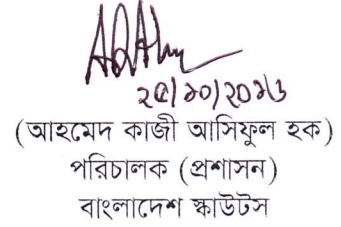 ২৫/১০/২০১৬
(আহমেদ কাজী আসিফুল হক)
পরিচালক (প্রশাসন)
বাংলাদেশ স্কাউটস